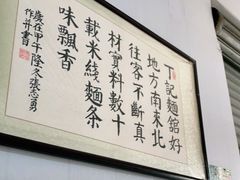 丁記麵舘好
地方南來北
往客不斷真
材實料數十
載米綫麵條
味飄香
歲在甲午隆冬張志勇
作并書